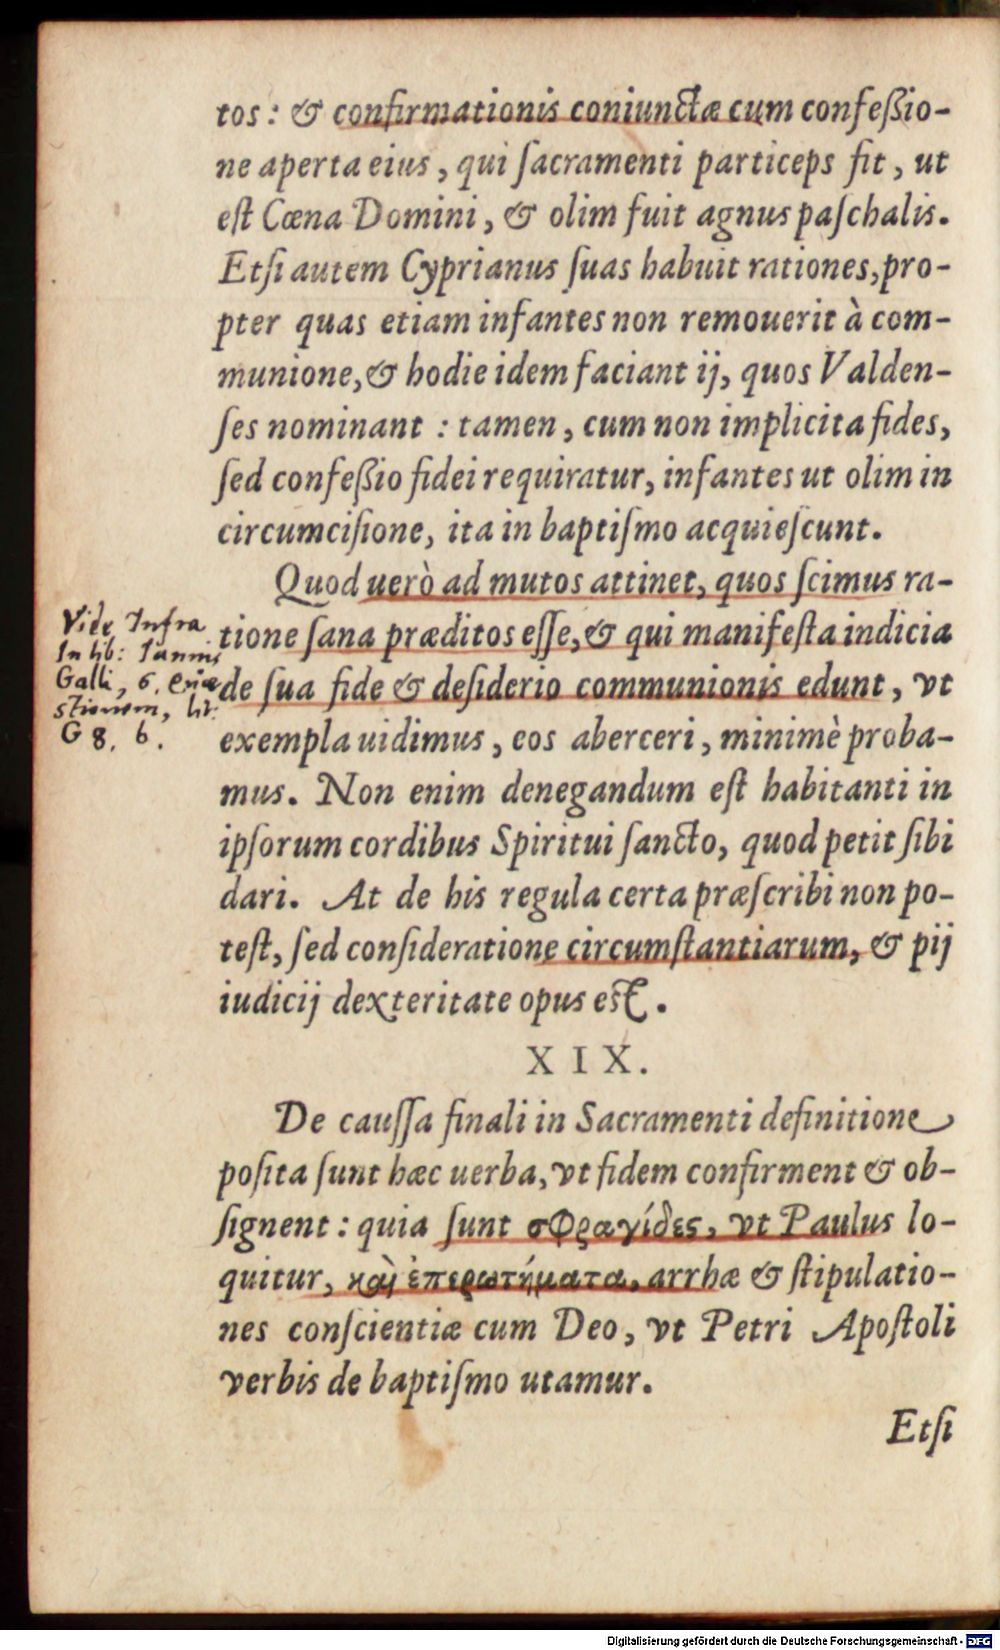 tos: & confirmationis coniunctæ cum confeßio-
ne aperta eius, qui ſacramenti particeps fit, ut
eſt Cœna Domini, & olim fuit agnus paſchalis.
Etſi autem Cyprianus ſuas habuit rationes, pro-
pter quas etiam infantes non remouerit à com-
munione, & hodie idem faciant ij, quos Valden-
ſes nominant : tamen, cum non implicita fides,
ſed confeßio fidei requiratur, infantes ut olim in
circumciſione, ita in baptiſmo acquieſcunt.
Quod uerò ad mutos attinet, quos ſcimus ra-
tione ſana præditos eſſe, & qui manifeſta indicia
de ſua fide & deſiderio communionis edunt, vt
exempla uidimus, eos aberceri, minimè proba-
mus. Non enim denegandum eſt habitanti in
ipſorum cordibus Spiritui ſancto, quod petit ſibi
dari. At de his regula certa præſcribi non po-
teſt, ſed conſideratione circumſtantiarum, & pij
iudicij dexteritate opus est.
Vide Infra
In lib: Iannis
Galli, 6.
G 8. b.
XIX.
De cauſſa finali in Sacramenti definitione
poſita ſunt hæc uerba, vt fidem confirment & ob-
ſignent: quia ſunt σφραγίδες, vt Paulus lo-
quitur, καὶ ἐπερωτήματα, arrhæ & ſtipulatio-
nes conſcientiæ cum Deo, vt Petri Apoſtoli
verbis de baptiſmo utamur.
Etſi
Digitalisierung gefördert durch die Deutsche Forschungsgemeinschaft - DFG